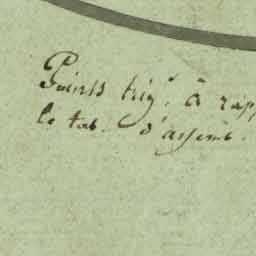 Points trig. à rapp
le tab. d'assemb.